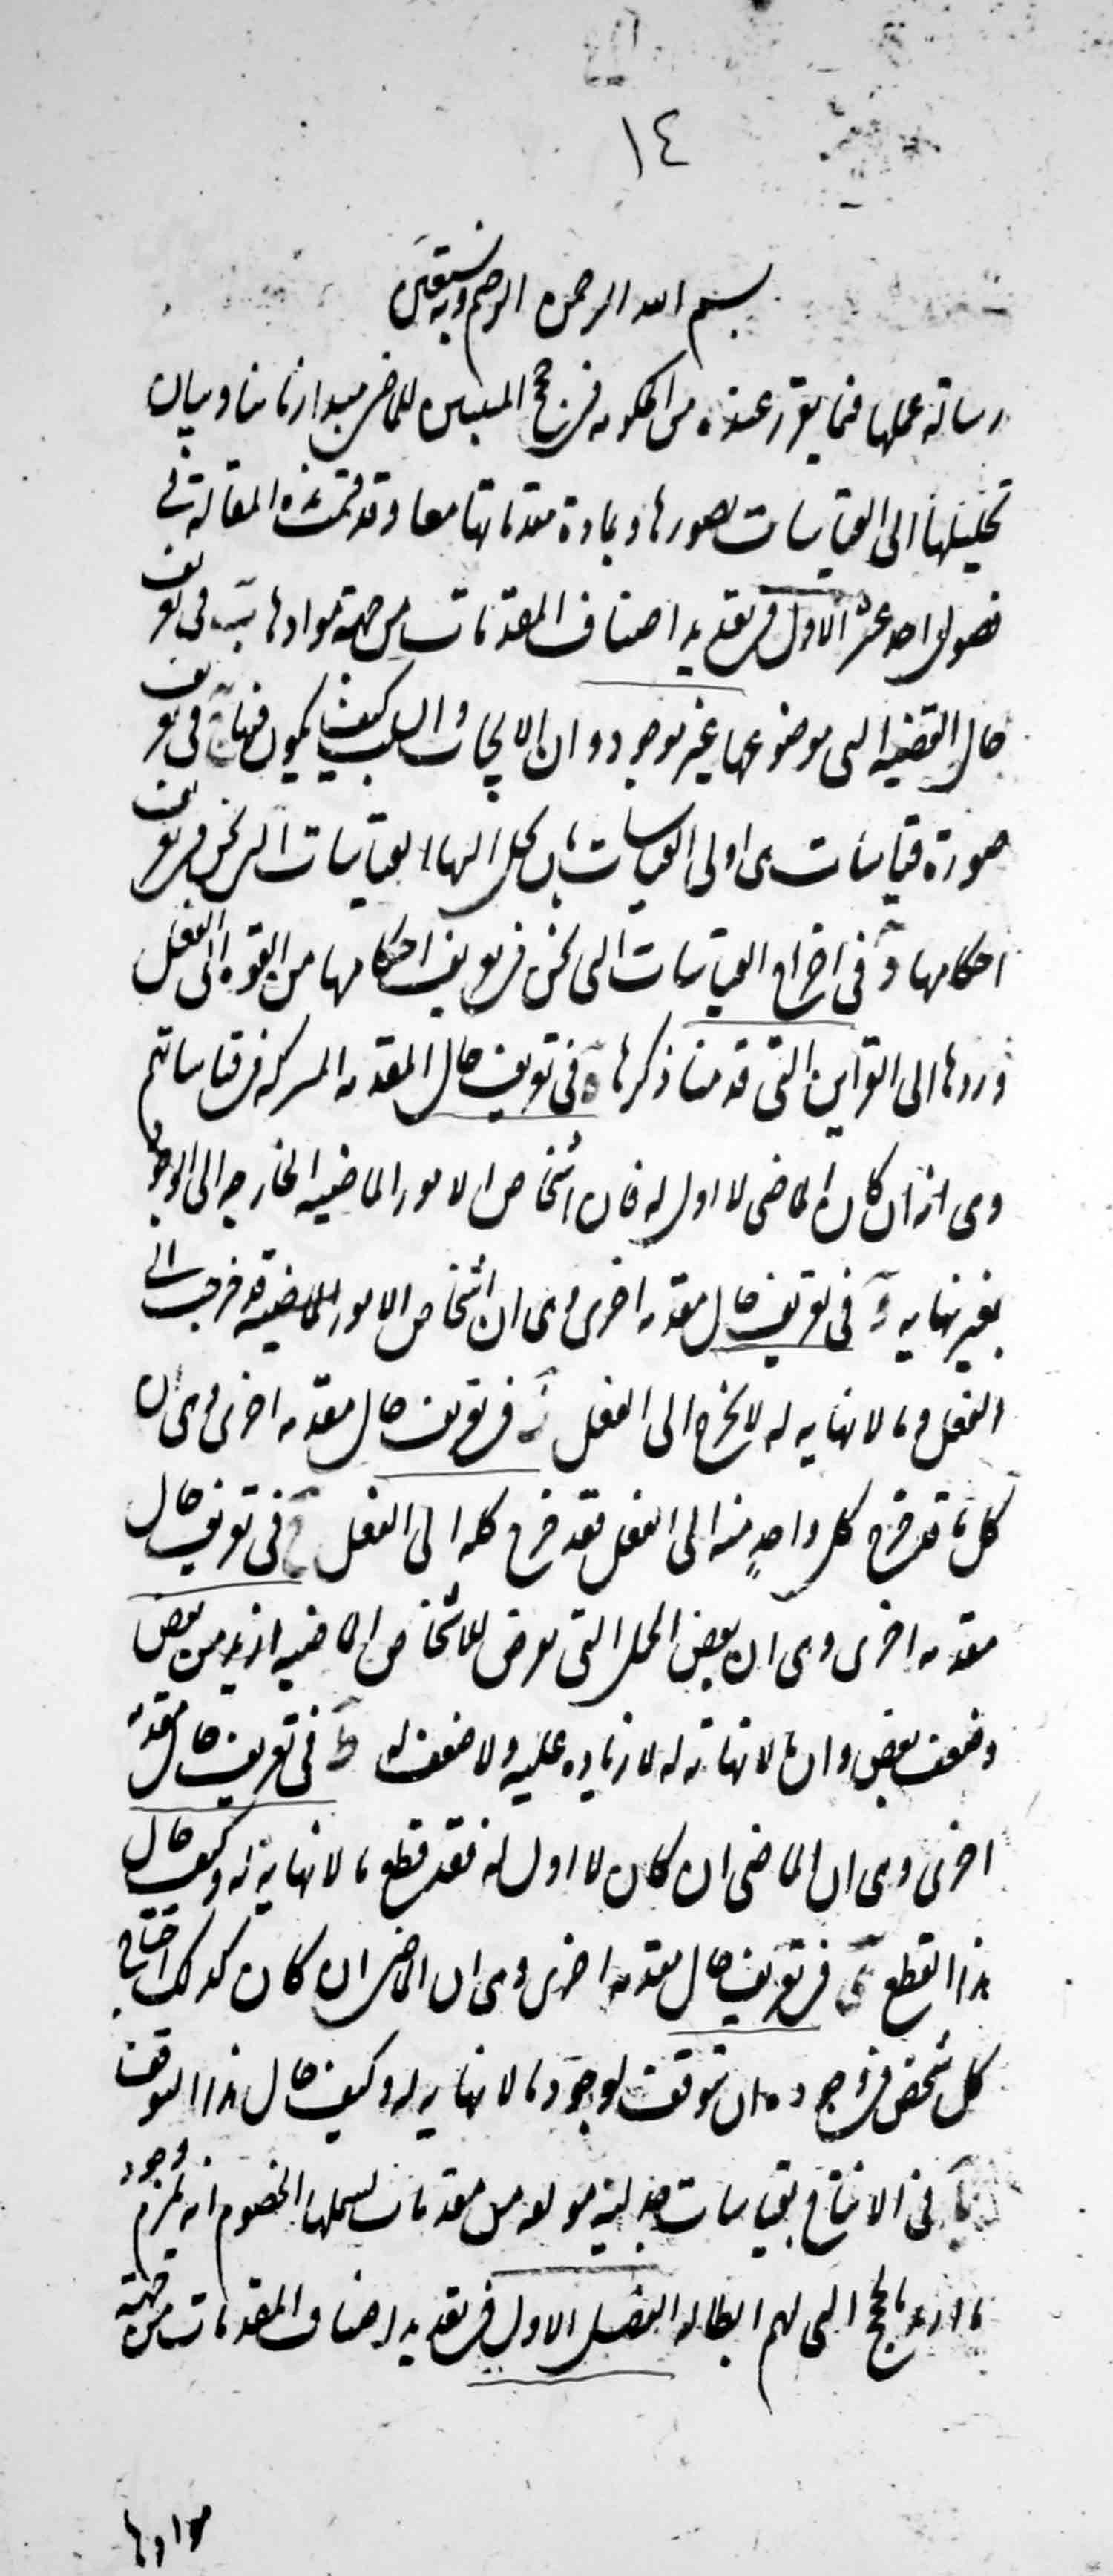 ١٤
بسم الله الرحمن الرحيم وبه نستعين
رسالة عملها فيما يقرر عنده من الحكومة في حجج المثبتين للماضي مبدا زمانيا وبيان
تحليلها الى القياسات بصورها وبمادة مقدماتها معا وقد قسمت هذه المقالة في
فصول احد عشر الاول في تعديد اصناف المقدمات من جهة موادها ب في تعريف
حال القضية التي موضوعها غير موجود وان الايجاب والسلب كيف يكون فيها ج في تعريف
صورة قياسات هي اولى القياسات بان يحل اليها القياسات التي نحن في تعريف
احكامها د في اخراج القياسات التي نحن في تعريف احكامها من القوة الى الفعل
وردها الى القوانين التي قدمنا ذكرها ه في تعريف حال المقدمة المشتركة في قياساتهم
وهي انه ان كان الماضي لا اول له فان اشخاص الامور الماضية الخارجة الى الوجود
بغير نهاية و في تعريف حال مقدمة اخرى وهي ان اشخاص الامور الماضية قد خرجت الى
الفعل وما لا نهاية له لا يخرج الى الفعل ز في تعريف حال مقدمة اخرى وهي ان
كل ما قد خرج كل واحد منه الى الفعل فقد خرج كله الى الفعل ح في تعريف حال
مقدمة اخرى وهي ان بعض الجمل التي تعرض للاشخاص الماضية ازيد من بعض
وضعف بعض وان ما لا نهاية له لا زيادة عليه ولا ضعف له ط في تعريف حال مقدمة
اخرى وهي ان الماضي ان كان لا اول له فقد قطع ما لا نهاية له وكيف حال
هذا القطع ى في تعريف حال مقدمة اخرى وهي ان الماضي ان كان كذلك احتاج
كل شخص في وجوده ان يتوقف لوجود ما لا نهاية له وكيف حال هذا التوقف
يا في الاقناع بقياسات جدلية مؤلفة من مقدمات يسلمها الخصوم انه يلزم وجود
ما ارادوا بالحجج التي لهم ابطاله الفصل الاول في تعديد اصناف المقدمات من جهة
موادها